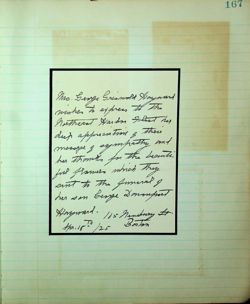 167
Mrs. George Griswold Hayward
wishes to express to the
Northeast Harbor Fleet her
deep appreciation of their
message of sympathy and
her thanks for the beauti
ful flowers which they
sent to the funeral of
her son George Davenport
Hayward.
Boston